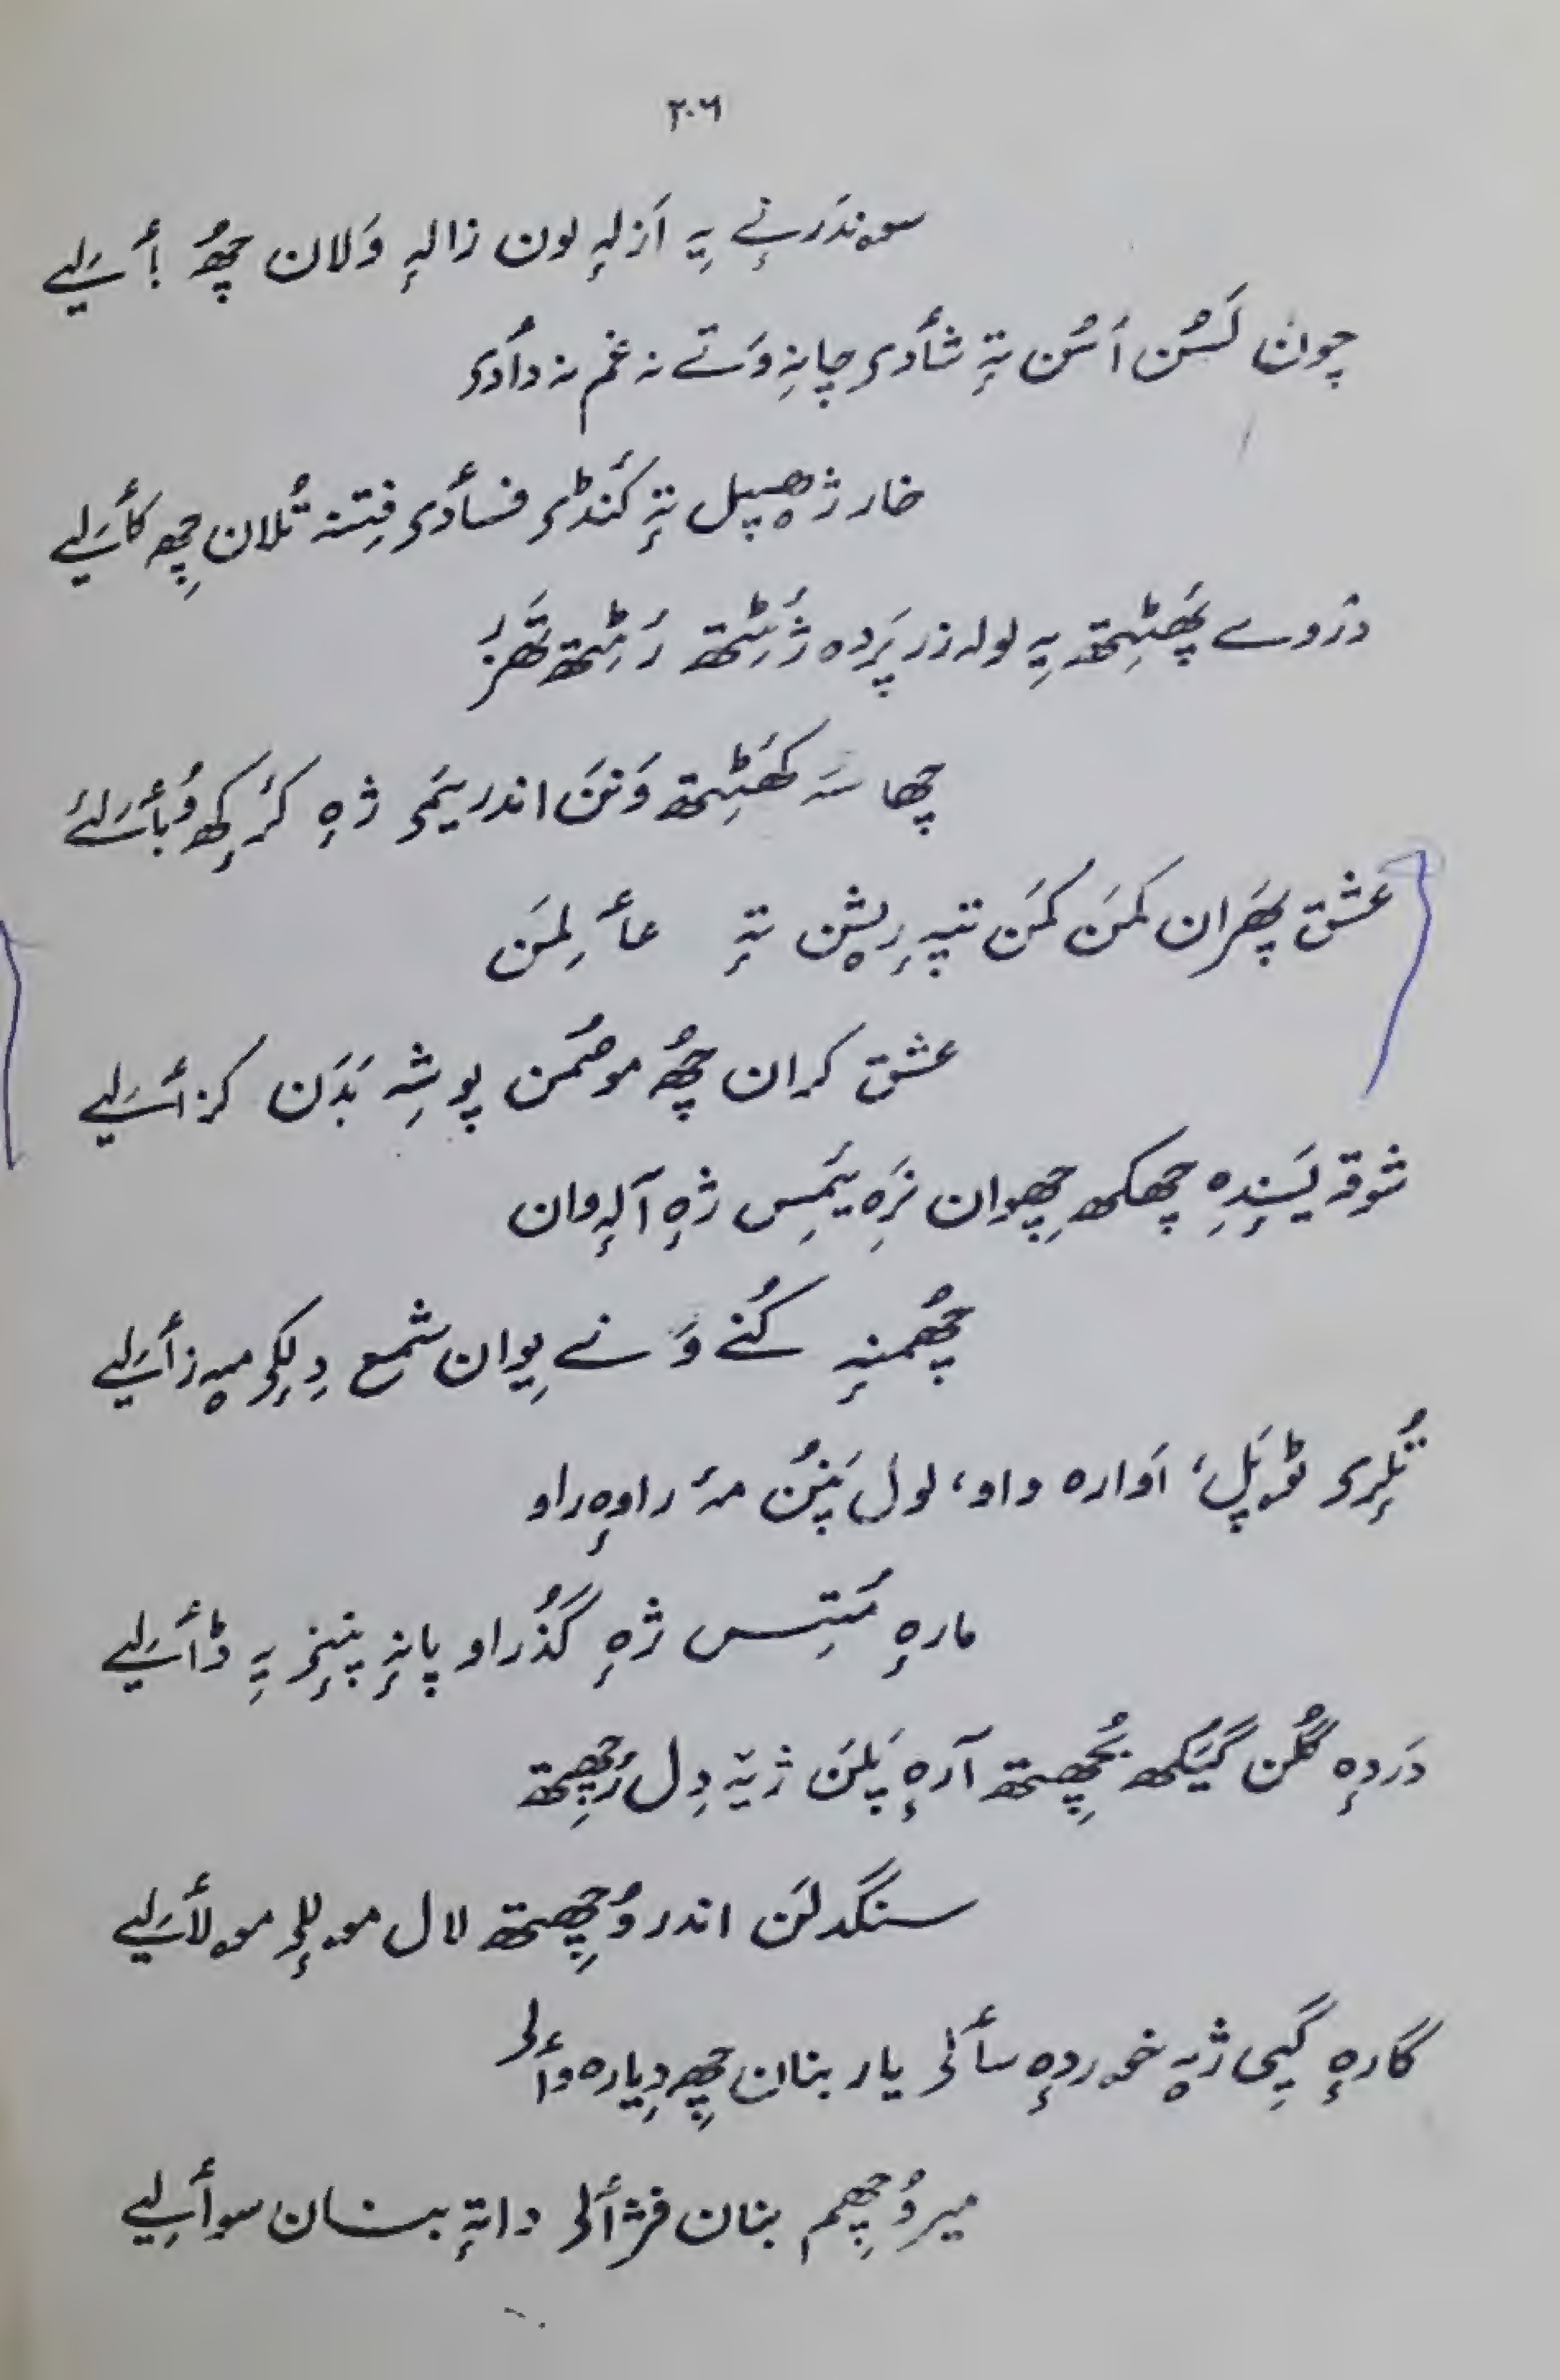 ۲۰۶
سۄندَرنےٚ یہِ اَزلہٕ لون زالہٕ وَلان چھُ بٲسۍلیے
چون لَسُن اَسُن تہٕ شٲدی چانہِ وَتے نہ غم نہ دٲدی
خار ژھیپل تہٕ کَنڈی فسٲدی فِتنہ تُلان چھِ کٲسۍلیے
دَزوے پھَٹِتھ یہِ لولہ زر پَردہ ژٔٹِتھ رَٹِتھ تھَزَر
چھا سہَ کھَٹِتھ وَنَن اندر یَمی ژہٕ کٔرِکھ وُبٲلیے
عشق پھَران کَمَن کَمَن تہٕ ریشن تہٕ عٲلِمَن
عشق کران چھُ موٚصُمن پوشہِ بَدَن کز ٲلیے
شوقہٕ پَسِندہِ چھکھ چھِوان نَرہِ یَمِس ژہٕ آلہٕ وان
چھُمنہٕ کُنے وَنے یِوان شمع دِلِکی میہ زٲلیے
تُلرِی ٹوٚپَل، اَوارہ واو، لول پَنُن مہٕ راوہٕ راو
مارہٕ مَتِس ژہٕ گُذراو پانہٕ پنِنی یہِ ڈٲلیے
دَردہٕ گُلن گیَکھ بُچھِتھ آرہٕ پَلَن ژیہٕ دِل رٔچھِتھ
سنگدلَن اندر وُچھِتھ لال موٚللی موٚلٲلیے
گارہٕ گیی ژیہٕ خۄردہٕ سٲلی یار بنان چھِ دِیارہ وٲلی
میر وُچھِم بنان فژٲلی داتہٕ بنان سوٲلیے